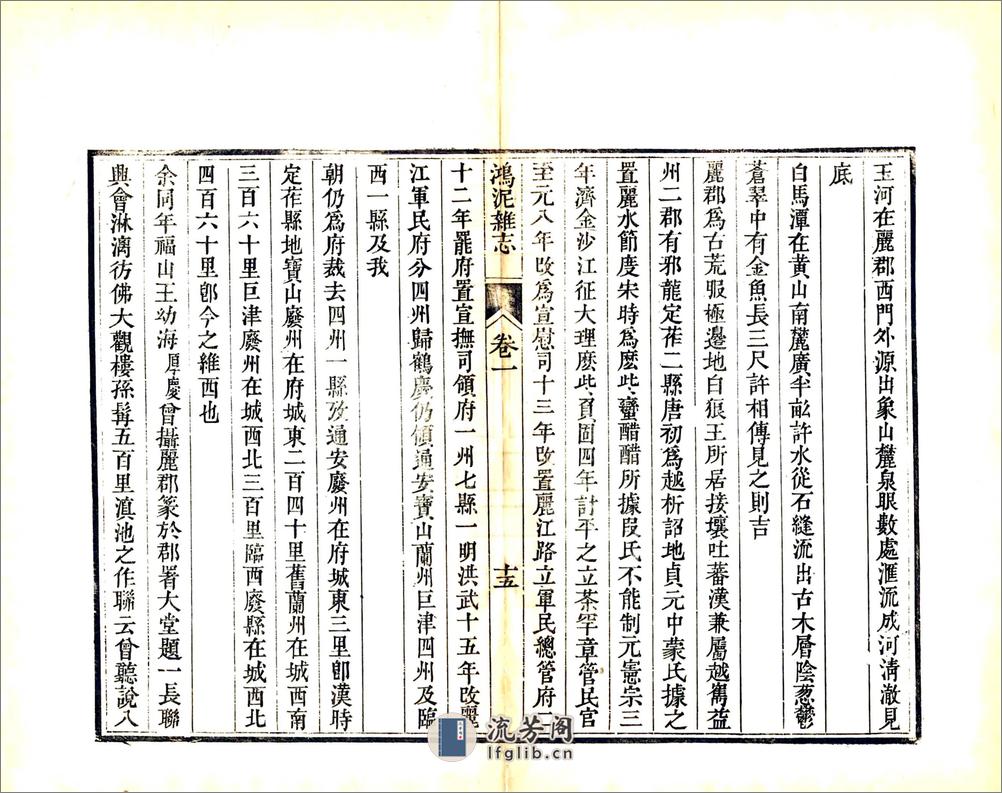 玉河在麗郡西門外源出象山麓泉眼數處滙流成河淸澈見
底
白馬潭在黃山南麓廣半畝許水從石縫流出古木層陰葱鬱
蒼翠中有金魚長三尺許相傳見之則吉
麗郡爲古荒服極邊地白狼王所居接壤吐蕃漢兼屬越嶲益
州二郡有邪龍定莋二縣唐初爲越析詔地貞元中蒙氏據之
置麗水節度宋時爲麽些蠻醋醋所據段氏不能制元憲宗三
年濟金沙江征大理麽些負固四年討平之立茶罕章管民官
至元八年改爲宣慰司十三年改置麗江路立軍民總管府二
鴻泥雜志
卷一
十五
十二年罷府置宣撫司領府一州七縣一明洪武十五年改麗
江軍民府分四州歸鶴慶仍領通安寶山蘭州巨津四州及臨
西一縣及我
朝仍爲府裁去四州一縣攷通安廢州在府城東三里卽漢時
定莋縣地寶山廢州在府城東二百四十里舊蘭州在城西南
三百六十里巨津廢州在城西北三百里臨西廢縣在城西北
四百六十里卽今之維西也
余同年福山王幼海厚慶曾攝麗郡篆於郡署大堂題一長聯
興會淋漓彷佛大觀樓孫髯五百里滇池之作聯云曾聽說入
流芳阁
lfglib.cn